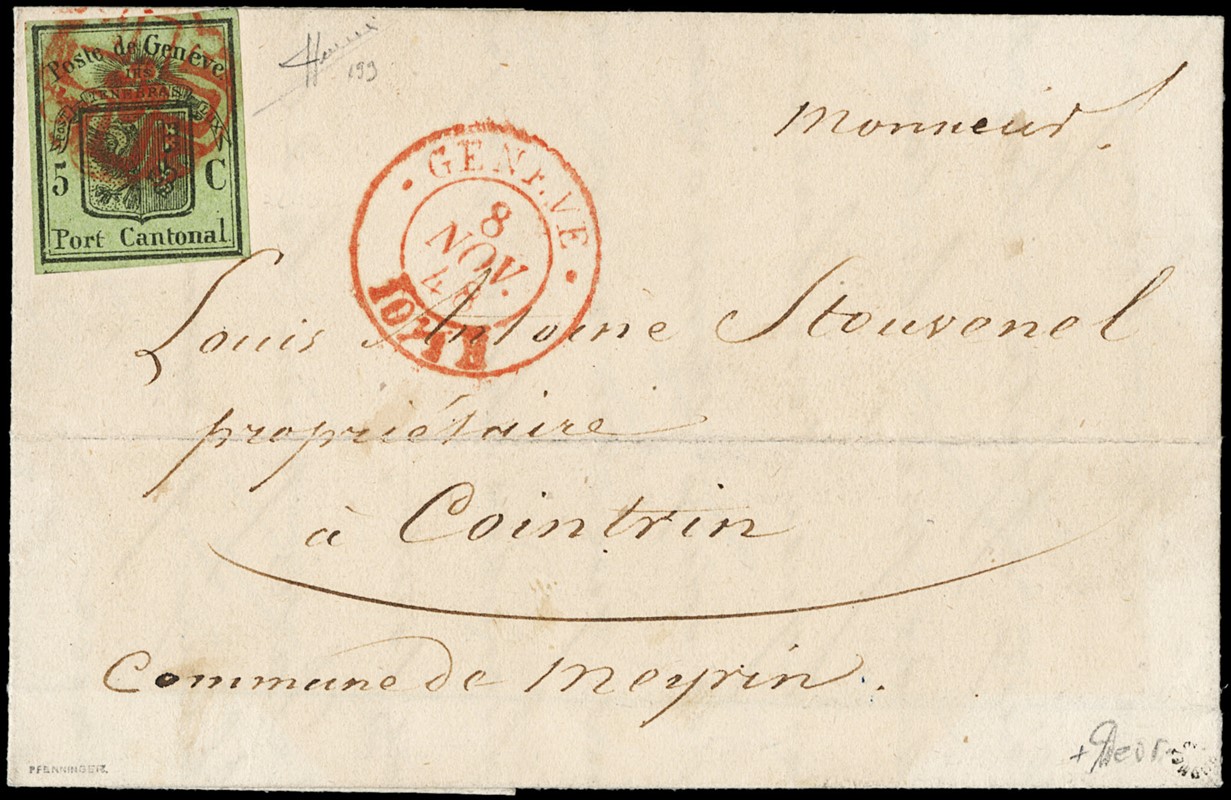 Poste de Genève
POST TENEBRAS LUX
5 C
Port Cantonal.
199
GENEVE
8
NOV.
48
10
Monsieur
Louis Antoine Stouvenel
propriétaire
à Cointrin
Commune de Meyrin.
PFENNINGER.